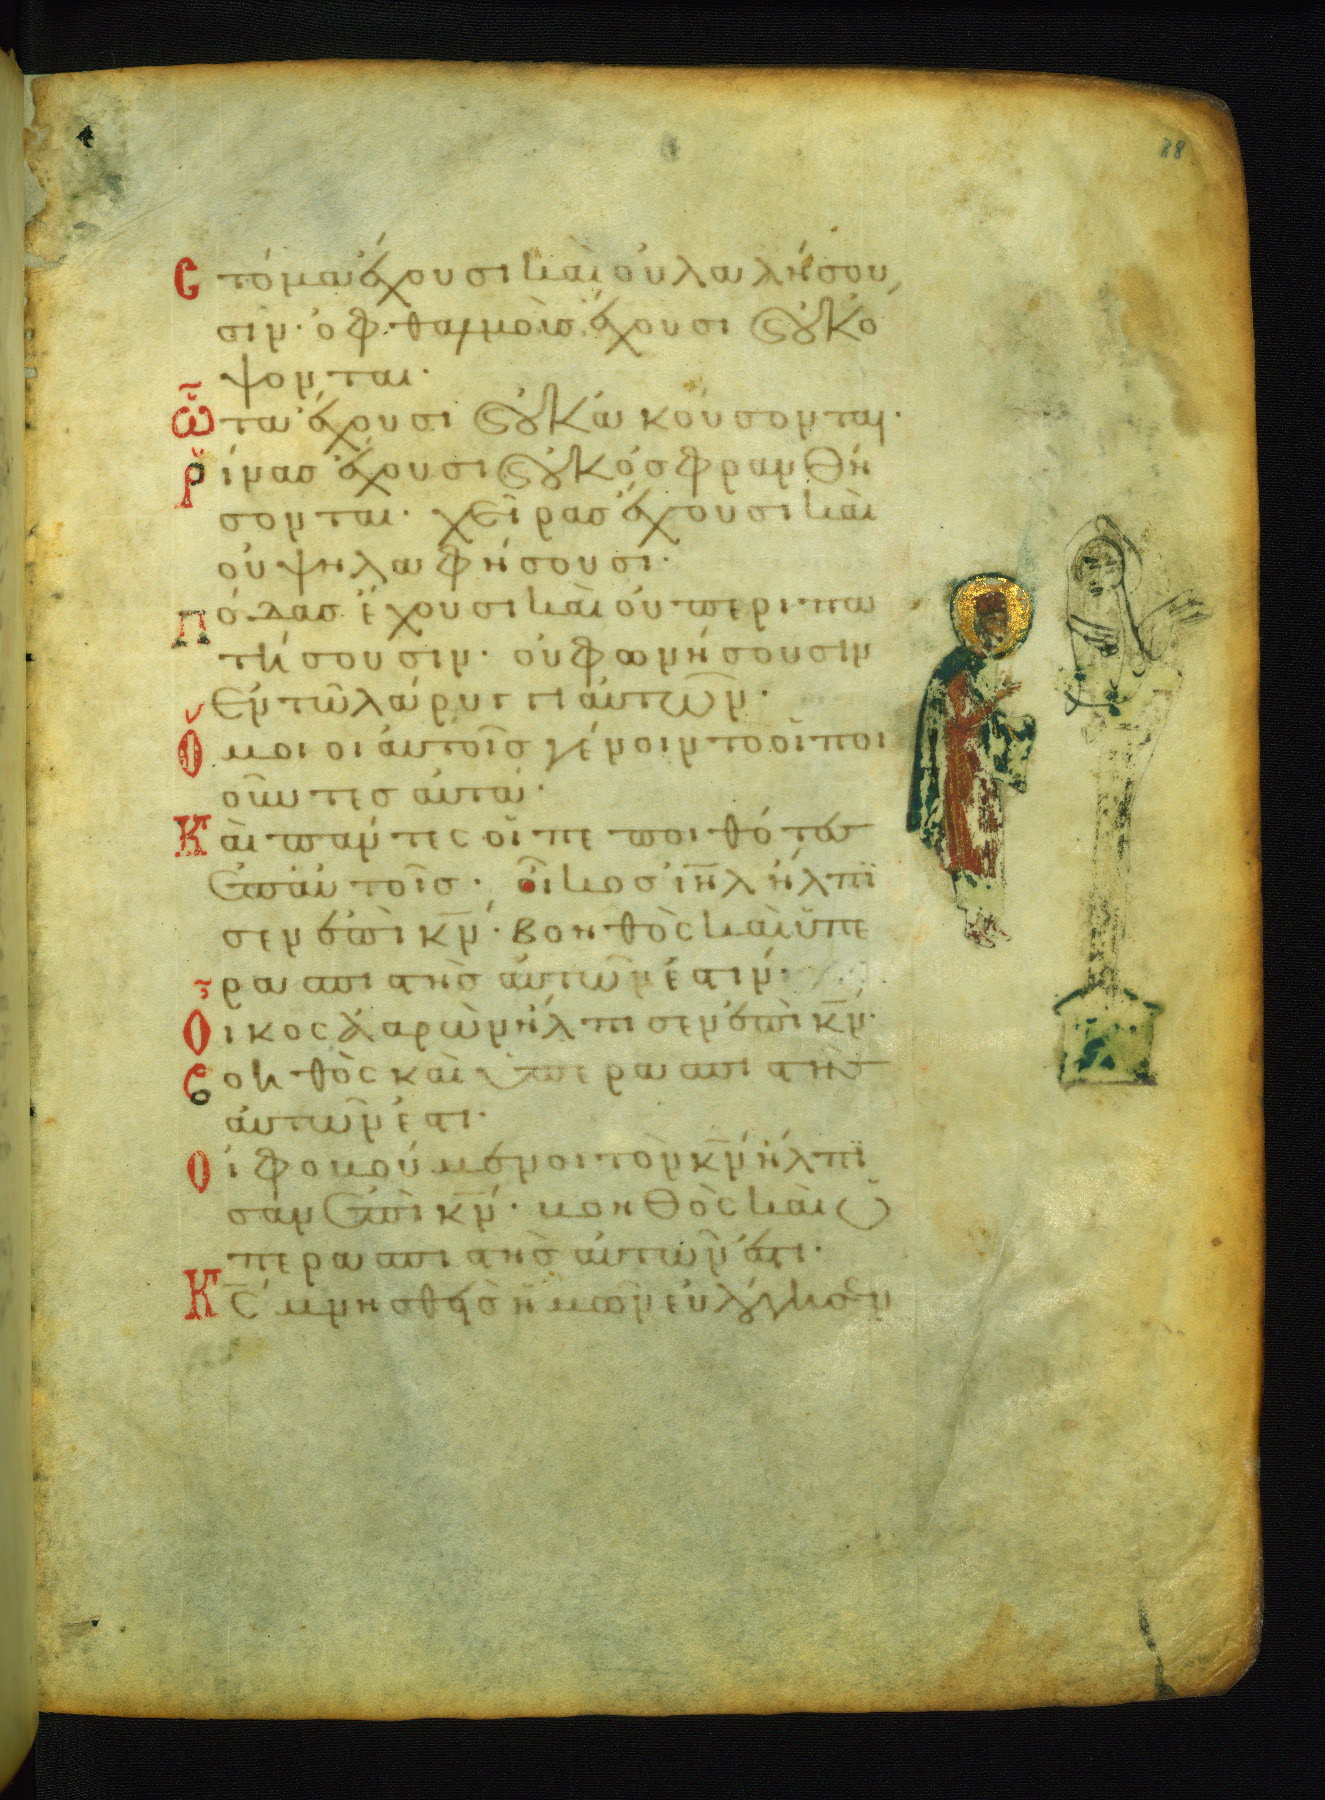 88
Στόμα ἔχουσι καὶ οὐ λαλήσου
σιν· ὀφθαλμοὺς ἔχουσι καὶ οὐκ ὄ
ψονται·
Ὦτα ἔχουσι καὶ οὐκ ἀκούσονται·
Ῥίνας ἔχουσι καὶ οὐκ ὀσφρανθή
σονται· χεῖρας ἔχουσι καὶ
οὐ ψηλαφήσουσι·
Πόδας ἔχουσι καὶ οὐ περιπα
τήσουσιν· οὐ φωνήσουσιν
ἐν τῷ λάρυγγι αὐτῶν·
Ὅμοιοι αὐτοῖς γένοιντο οἱ ποι
οῦντες αὐτά·
Καὶ πάντες οἱ πεποιθότες
ἐπ αὐτοῖς· οἶκος ἰηλ ἤλπι
σεν ἐπὶ κν· βοηθὸς καὶ ὑπε
ρασπιστὴς αὐτῶν ἐστιν·
Οἶκος Ἀαρὼν ἤλπισεν ἐπὶ κν·
βοηθὸς καὶ ὑπερασπιστὴς
αὐτῶν ἐστι·
Οἱ φοβούμενοι τὸν κν ἤλπι
σαν ἐπὶ κν· βοηθὸς καὶ ὑ
περασπιστὴς αὐτῶν ἐστι·
Κς μνησθεὶς ἡμῶν εὐλόγησεν